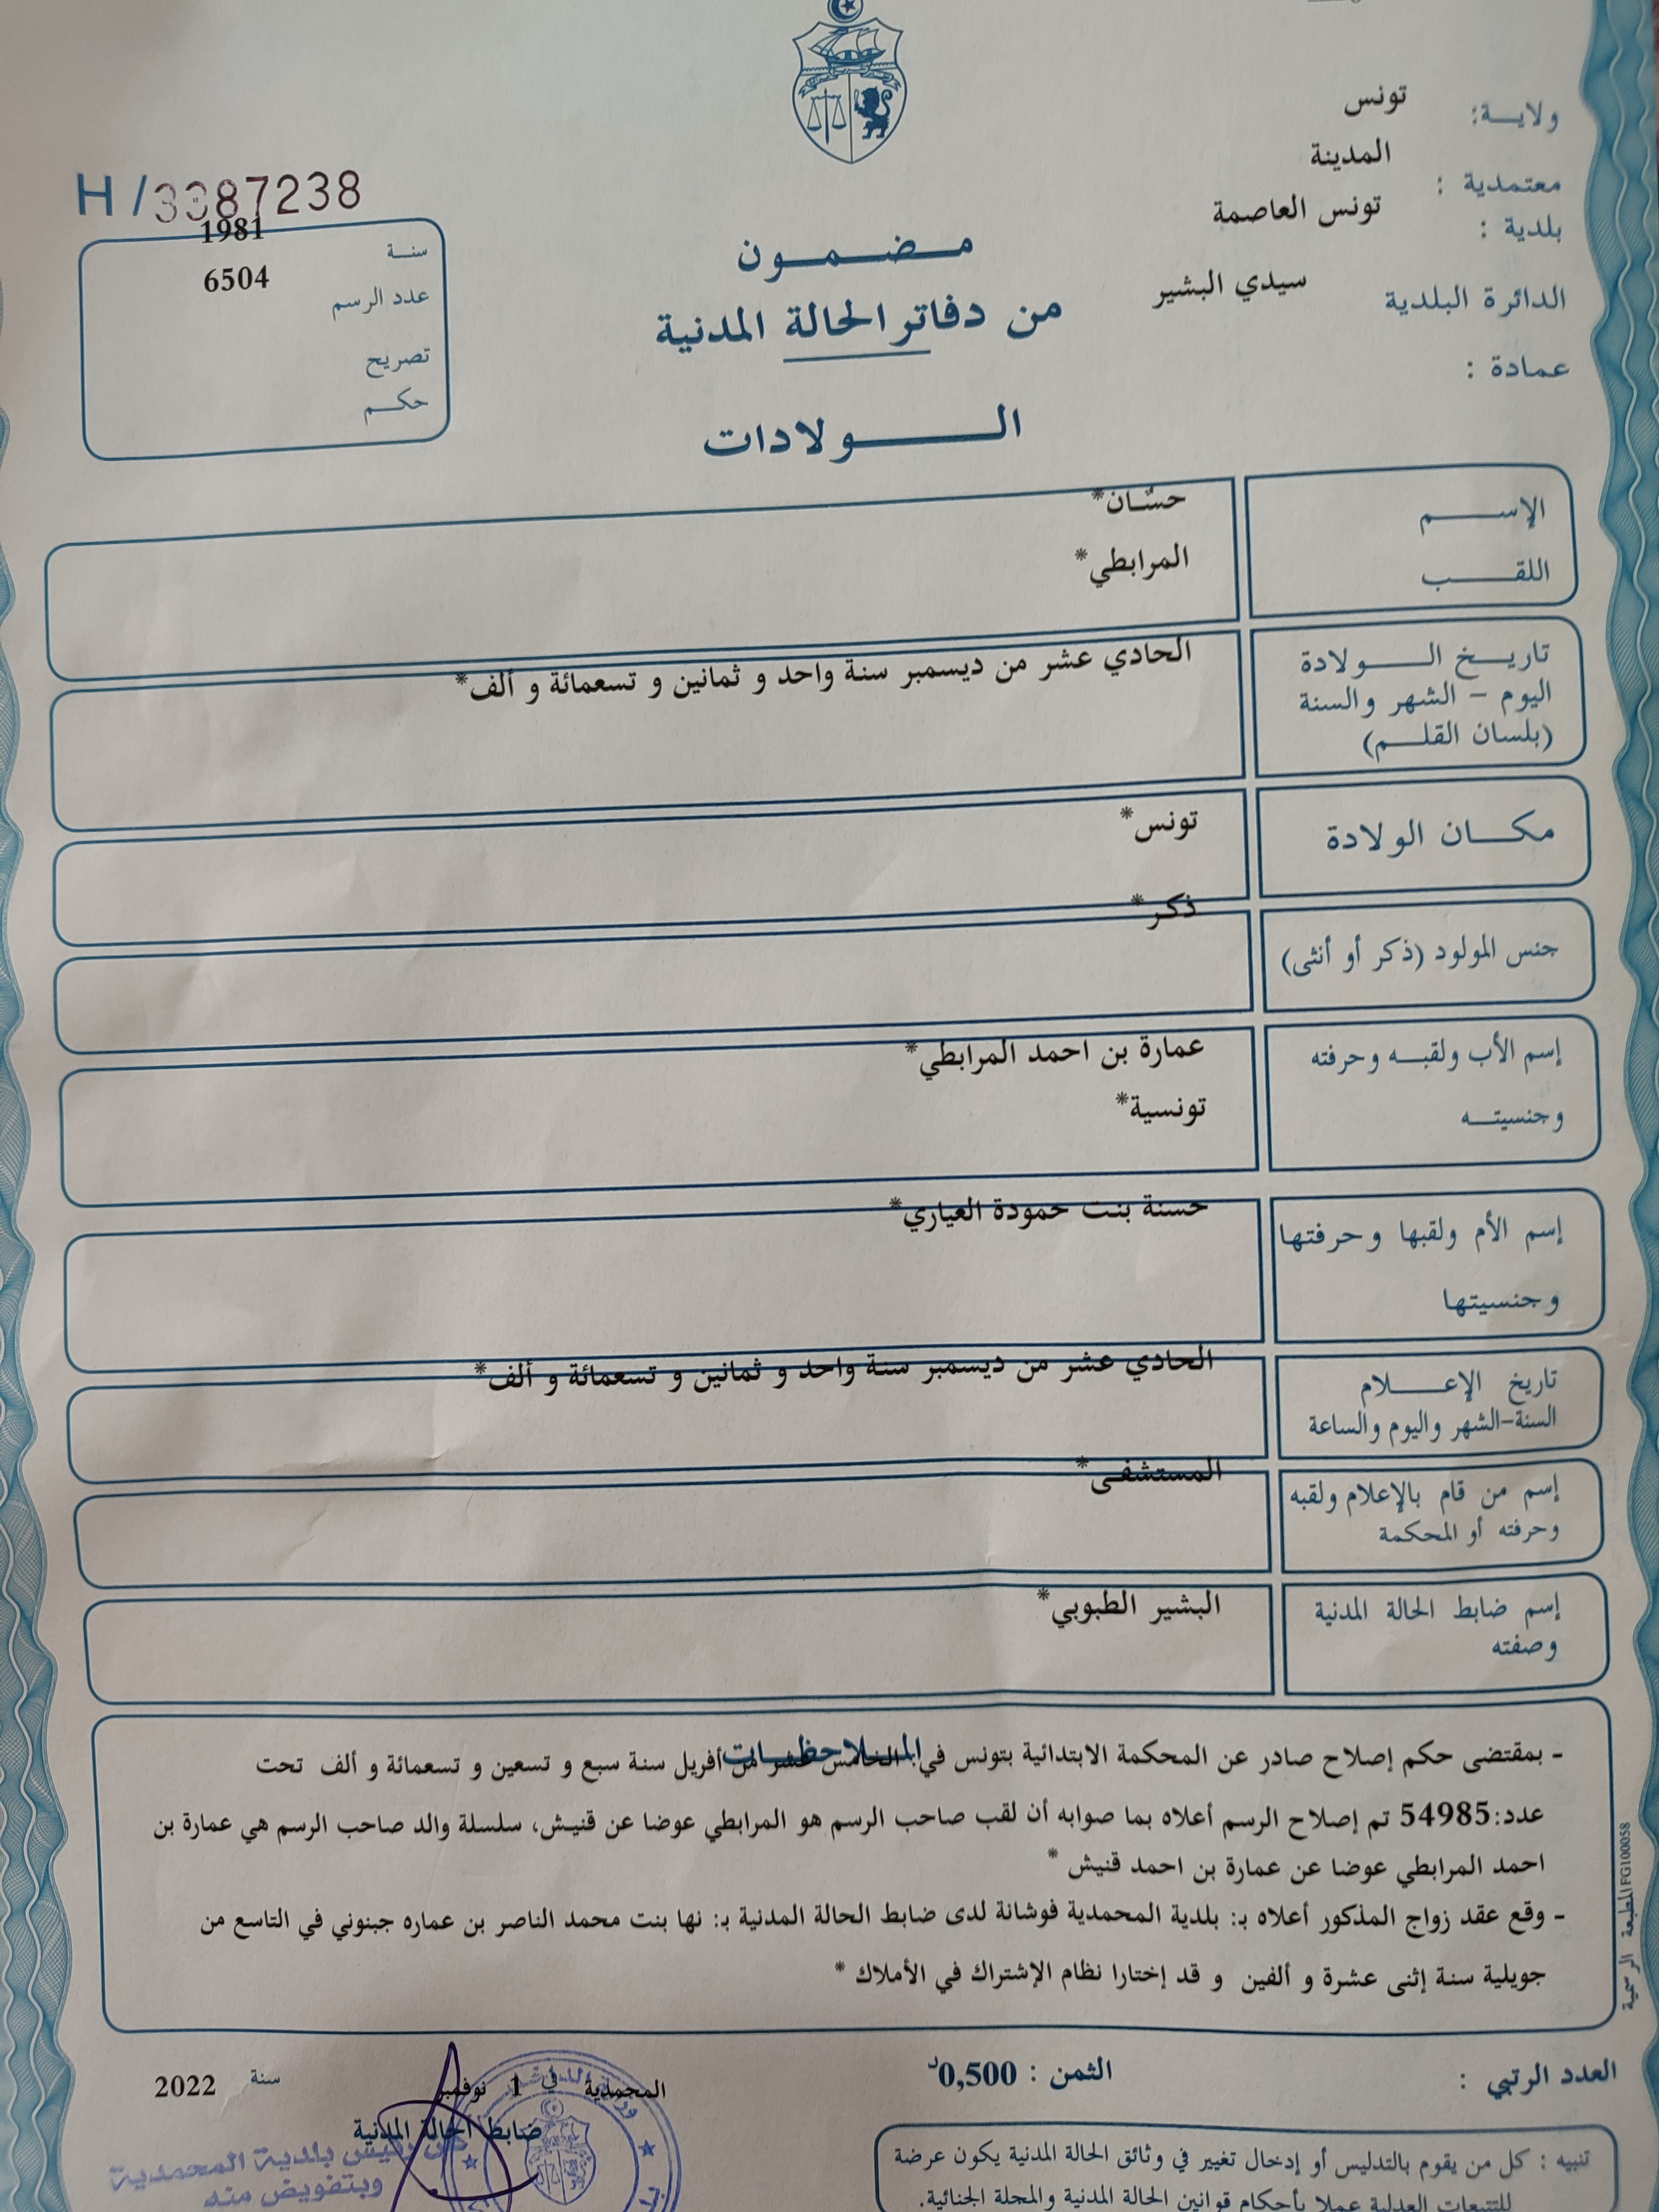 ولاية: تونس
معتمدية : المدينة
بلدية : تونس العاصمة
الدائرة البلدية سيدي البشير
عمادة :
H/3387238
سنة 1981
عدد الرسم 6504
تصريح
حكم
مضمون
من دفاتر الحالة المدنية
الولادات
الإسم حسّان*
اللقب المرابطي*
تاريخ الولادة الحادي عشر من ديسمبر سنة واحد و ثمانين و تسعمائة و ألف*
اليوم - الشهر والسنة
(بلسان القلم)
مكان الولادة تونس*
جنس المولود (ذكر أو أنثى) ذكر*
إسم الأب ولقبه وحرفته عمارة بن احمد المرابطي*
وجنسيته تونسية*
إسم الأم ولقبها وحرفتها حسنة بنت حمودة العياري*
وجنسيتها
تاريخ الإعلام الحادي عشر من ديسمبر سنة واحد و ثمانين و تسعمائة و ألف*
السنة-الشهر واليوم والساعة
إسم من قام بالإعلام ولقبه المستشفى*
وحرفته أو المحكمة
إسم ضابط الحالة المدنية البشير الطبوبي*
وصفته
الملاحظات
- بمقتضى حكم إصلاح صادر عن المحكمة الابتدائية بتونس في: الخامس عشر من أفريل سنة سبع و تسعين و تسعمائة و ألف تحت
عدد:54985 تم إصلاح الرسم أعلاه بما صوابه أن لقب صاحب الرسم هو المرابطي عوضا عن قنيش، سلسلة والد صاحب الرسم هي عمارة بن
احمد المرابطي عوضا عن عمارة بن احمد قنيش *
- وقع عقد زواج المذكور أعلاه بـ: بلدية المحمدية فوشانة لدى ضابط الحالة المدنية بـ: نها بنت محمد الناصر بن عماره جبنوني في التاسع من
جويلية سنة إثنى عشرة و ألفين و قد إختارا نظام الإشتراك في الأملاك *
المطبعة الرسمية FG100058
العدد الرتبي :
الثمن : 0,500د
المحمدية في 1 نوفمبر سنة 2022
ضابط الحالة المدنية
عن رئيس بلدية المحمدية
وبتفويض منه
تنبيه : كل من يقوم بالتدليس أو إدخال تغيير في وثائق الحالة المدنية يكون عرضة
للتتبعات العدلية عملا بأحكام قوانين الحالة المدنية والمجلة الجنائية.